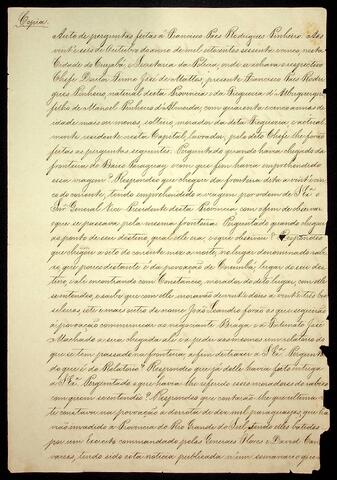 Copia
Auto de perguntas feitas á Francisco Paes Rodrigues Pinheiro. Aos
vinte seis de Outubro do anno de mil oito centos sessenta e cinco, nesta
Cidade do Cuyabá e Secretaria da Policia, onde se achava o respectivo
Chefe Doutor Firmo José de Mattos, presente Francisco Paes Rodri
gues Pinheiro, natural desta Provincia e da Freguesia d'Albuquerque
filho de Manoel Pinheiro d'Almeida, com quarenta e cinco annos de
idade mais ou menos, solteiro, morador da dita Freguesia, e actual
mente residente nesta Capital, lavrador, pelo dito Chefe lhe forão
feitas as perguntas seguintes. Perguntado quando havia chegado da
fronteira do Baixo Paraguay e com que fim havia emprehendido
essa viagem? Respondeo que chegara da fronteira dita a vinte e um
do corrente, tendo emprehendido a viagem por ordem de S. Ex.ª o
Snr. General Vice Presidente desta Provincia com o fim de observar
o que se passara pela mesma fronteira. Perguntado quando chegou
ao ponto de seu destino, qual elle era, e o que observou? Respondeo
que chegou a sete do corrente mez a noite, no lugar denominado
be que pouco distante é da povoação de Corumbá, lugar do seu des
tino, e ale encontrando com Constancio, morador do dito lugar, com elle
se entendeo, e soube que com elle moravão de vinte e dois a vinte e tres bra
sileiros, este e mais outro de nome João Leandro forão os que seguirão
á povoação communicar ao negociante Braga e a Fortunato José
Machado a sua chegada ali e a pedir aos mesmos um relatorio do
que se tem passado na fronteira, a fim de trazer a S. Ex.ª Pergunta
do que é do Relatorio? Respondeo que já delle havia feito entrega
a S. Ex.ª Perguntado o que havia lhe referido esses moradores do
com quem se entendeo? Respondeo que contarão-lhe que ultimamen
te constava na povoação a derrota de dez mil paraguayos que ha
vião invadido a Provincia do Rio Grande do Sul, sendo elles batidos
por um Exercito commandado pelos Generaes Flores e David Cana
varro, tendo sido esta noticia publicada n'um semanario que